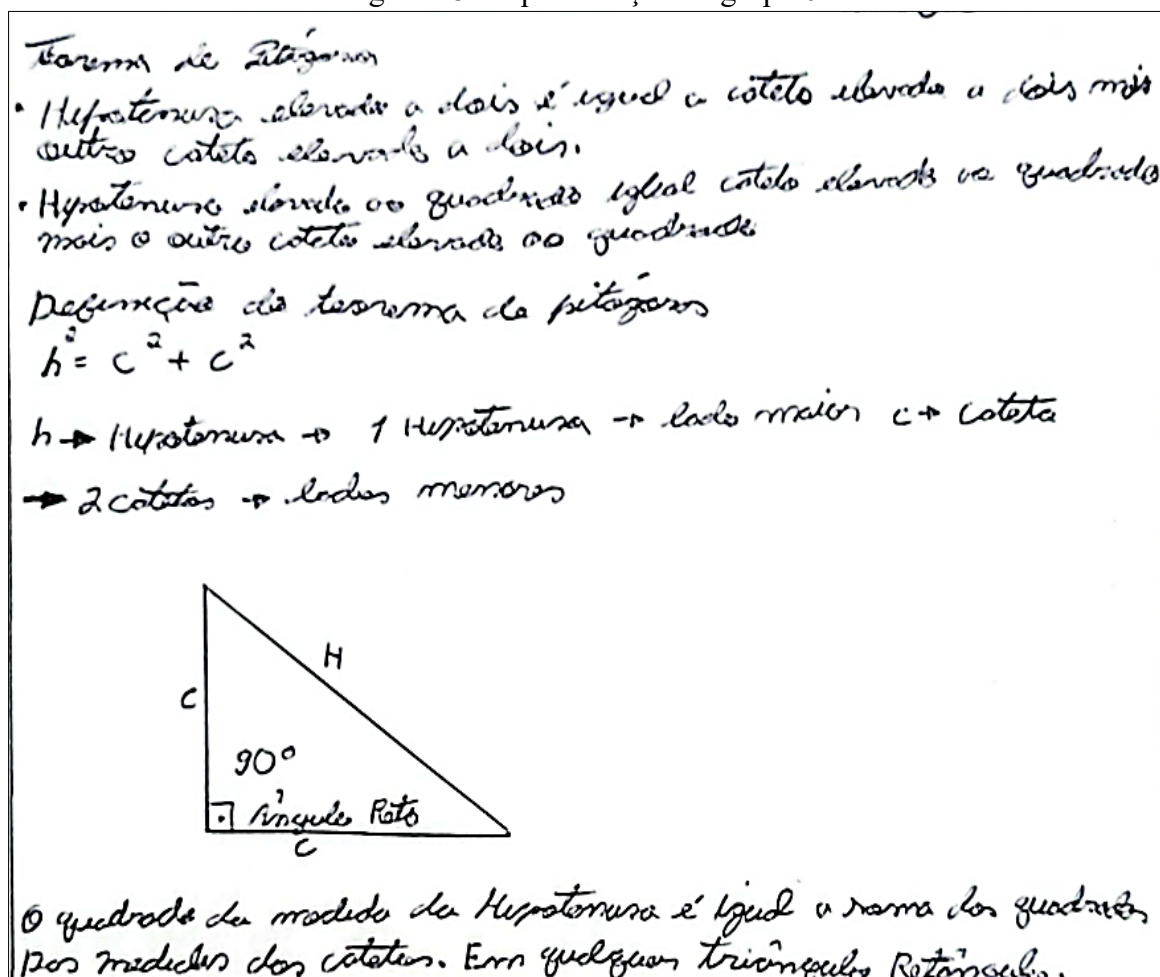 Teorema de Pitágoras
• Hipotenusa elevado a dois é igual a cateto elevado a dois mais
outro cateto elevado a dois.
• Hipotenusa elevado ao quadrado igual cateto elevado ao quadrado
mais o outro cateto elevado ao quadrado
Definição do teorema de pitágoras
h² = c² + c²
h → Hipotenusa → 1 Hipotenusa → lado maior c → cateto
→ 2 catetos → lados menores
H
C
90°
Ângulo Reto
C
O quadrado da medida da Hipotenusa é igual a soma dos quadrados
Das medidas dos catetos. Em qualquer triângulo Retângulo.